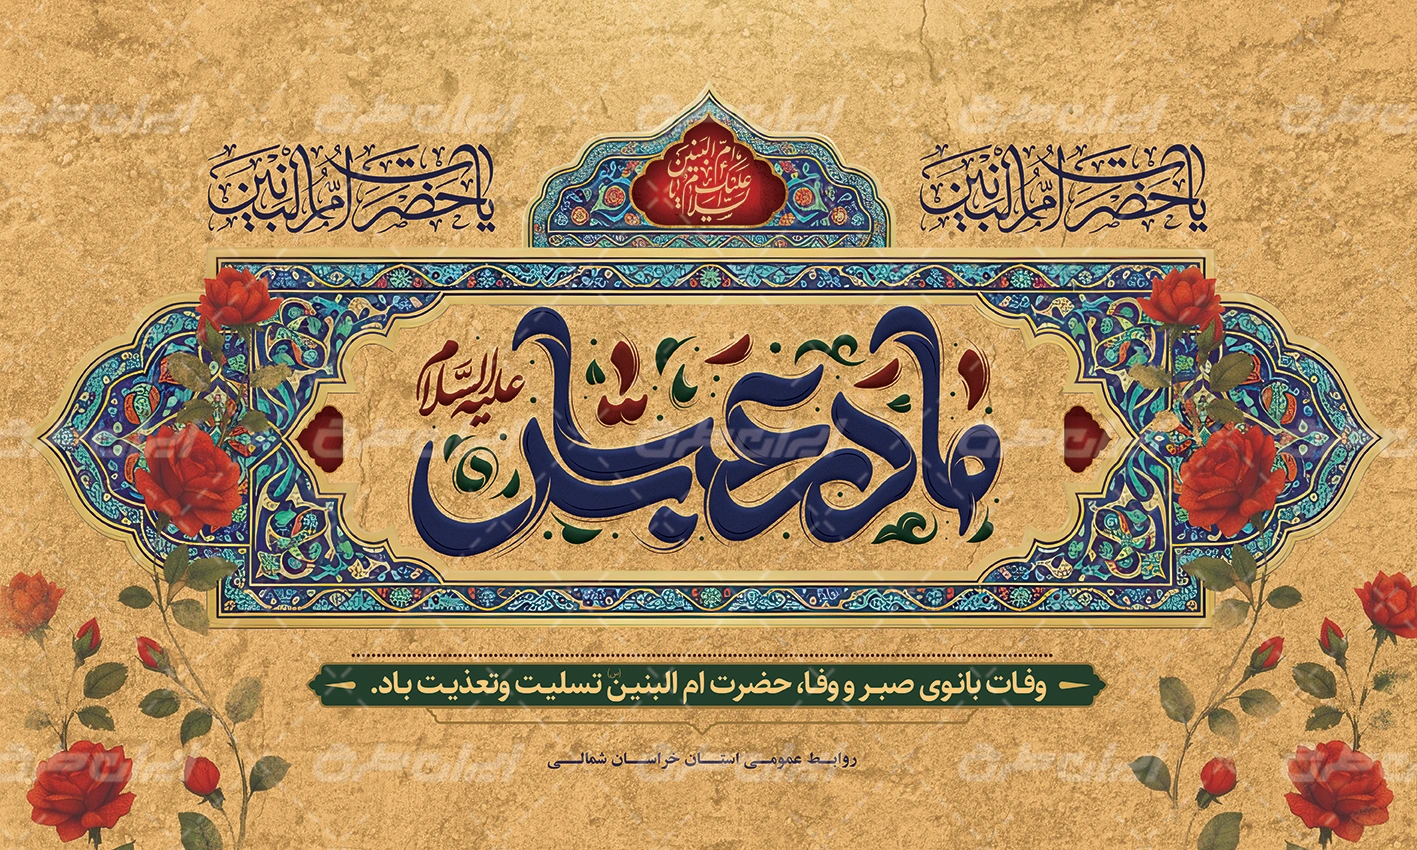 السلام علیک یا ام البنین
یا حضرت امُّ البنین
یا حضرت امُّ البنین
مادر عباس
علیه السَّلام
وفات بانوی صبر و وفا، حضرت ام البنین (س) تسلیت وتعذیت باد.
روابط عمومی استان خراسان شمالی
ایران طرح